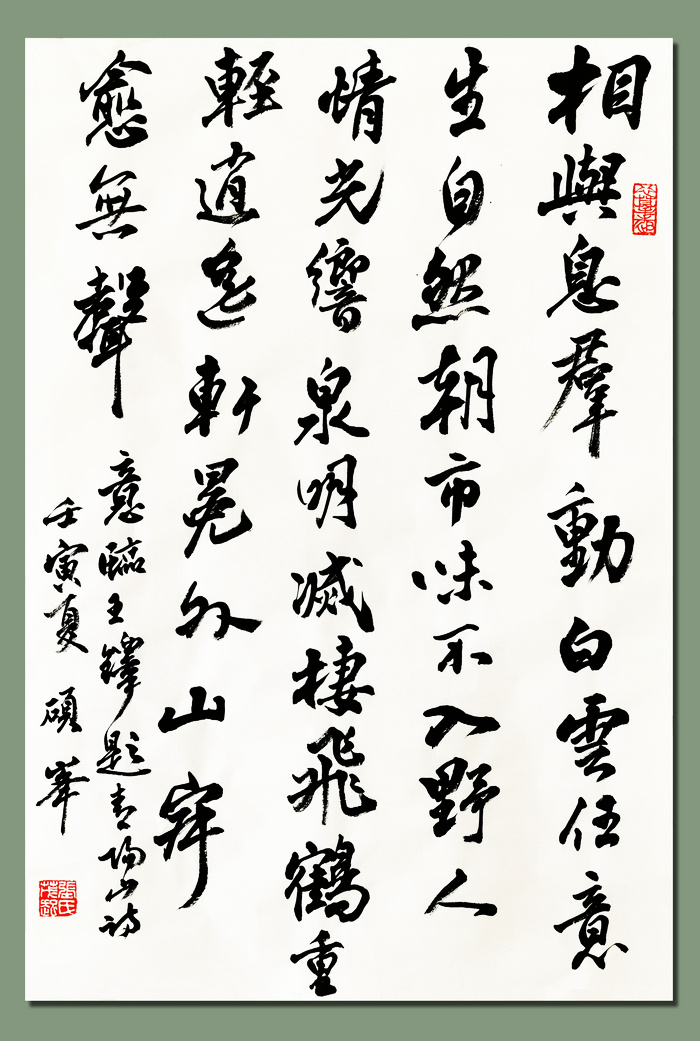 相與息羣動白雲任意
生自然朝市味不入野人
情光響泉明滅棲飛鶴重
輕逍遙軒冕外山
愈無聲
意臨王鐸題青陽山詩
壬寅夏碩峯